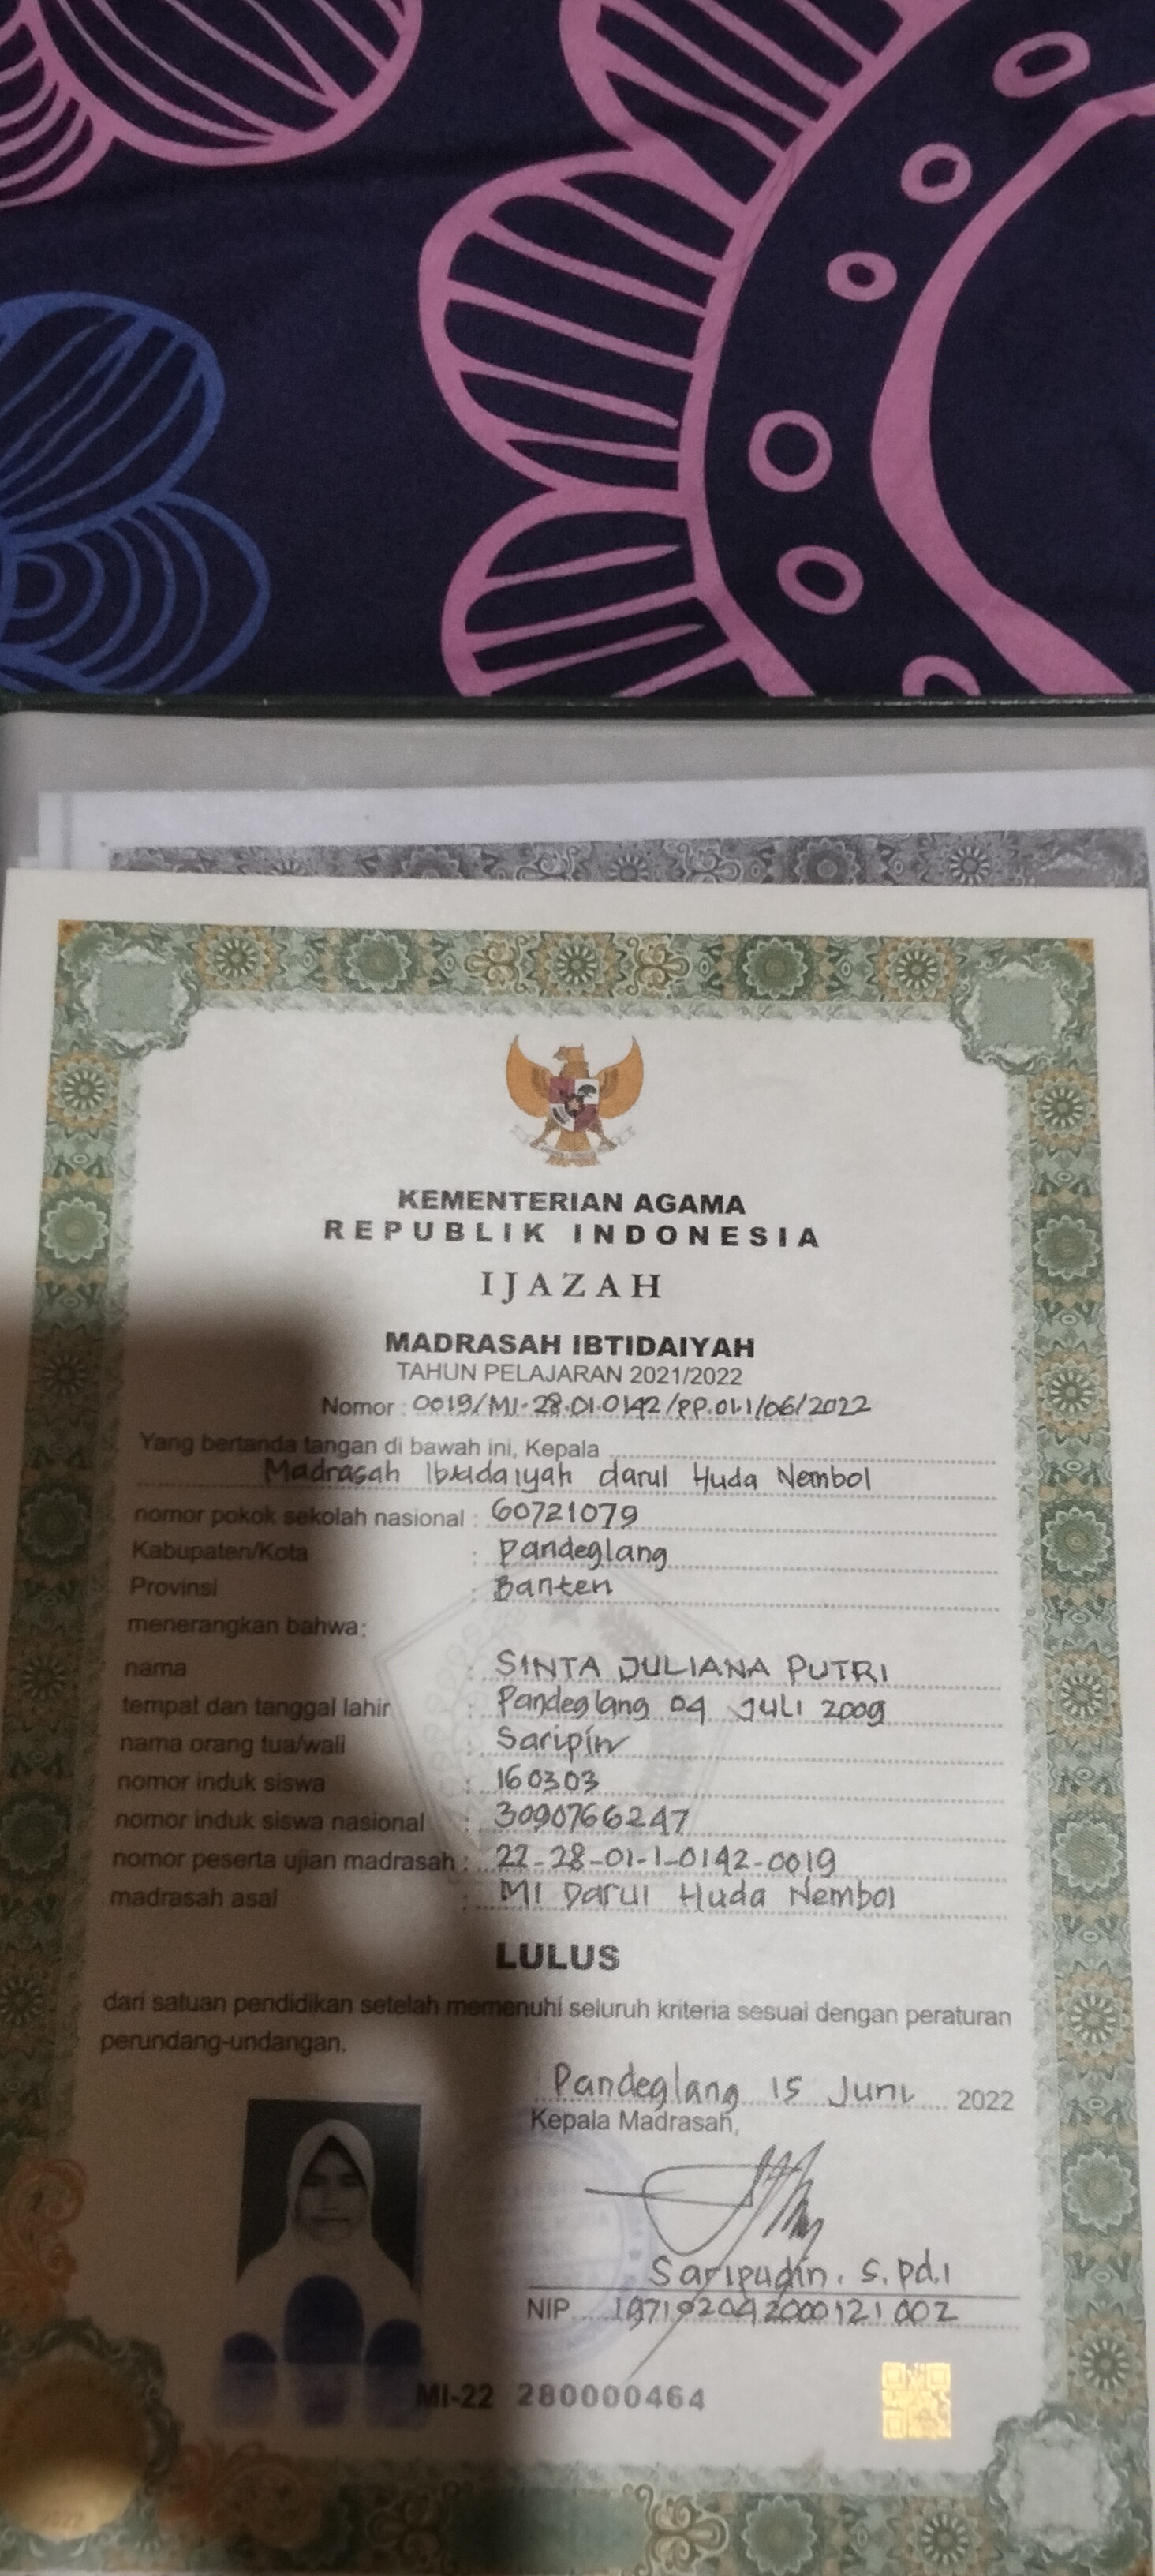 KEMENTERIAN AGAMA
REPUBLIK INDONESIA
IJAZAH
MADRASAH IBTIDAIYAH
TAHUN PELAJARAN 2021/2022
Nomor : 0019/MI-28.01.0142/PP.01.1/06/2022
Yang bertanda tangan di bawah ini, Kepala
Madrasah Ibtidaiyah darul Huda Nembol
nomor pokok sekolah nasional : 60721079
Kabupaten/Kota : Pandeglang
Provinsi : Banten
menerangkan bahwa:
nama : SINTA JULIANA PUTRI
tempat dan tanggal lahir : Pandeglang 04 JULI 2009
nama orang tua/wali : Saripin
nomor induk siswa : 160303
nomor induk siswa nasional : 3090766247
nomor peserta ujian madrasah : 22-28-01-1-0142-0019
madrasah asal : MI Darul Huda Nembol
LULUS
dari satuan pendidikan setelah memenuhi seluruh kriteria sesuai dengan peraturan
perundang-undangan.
Pandeglang 15 Juni 2022
Kepala Madrasah,
Saripudin. S.Pd.I
NIP 197102042000121002
MI-22 280000464